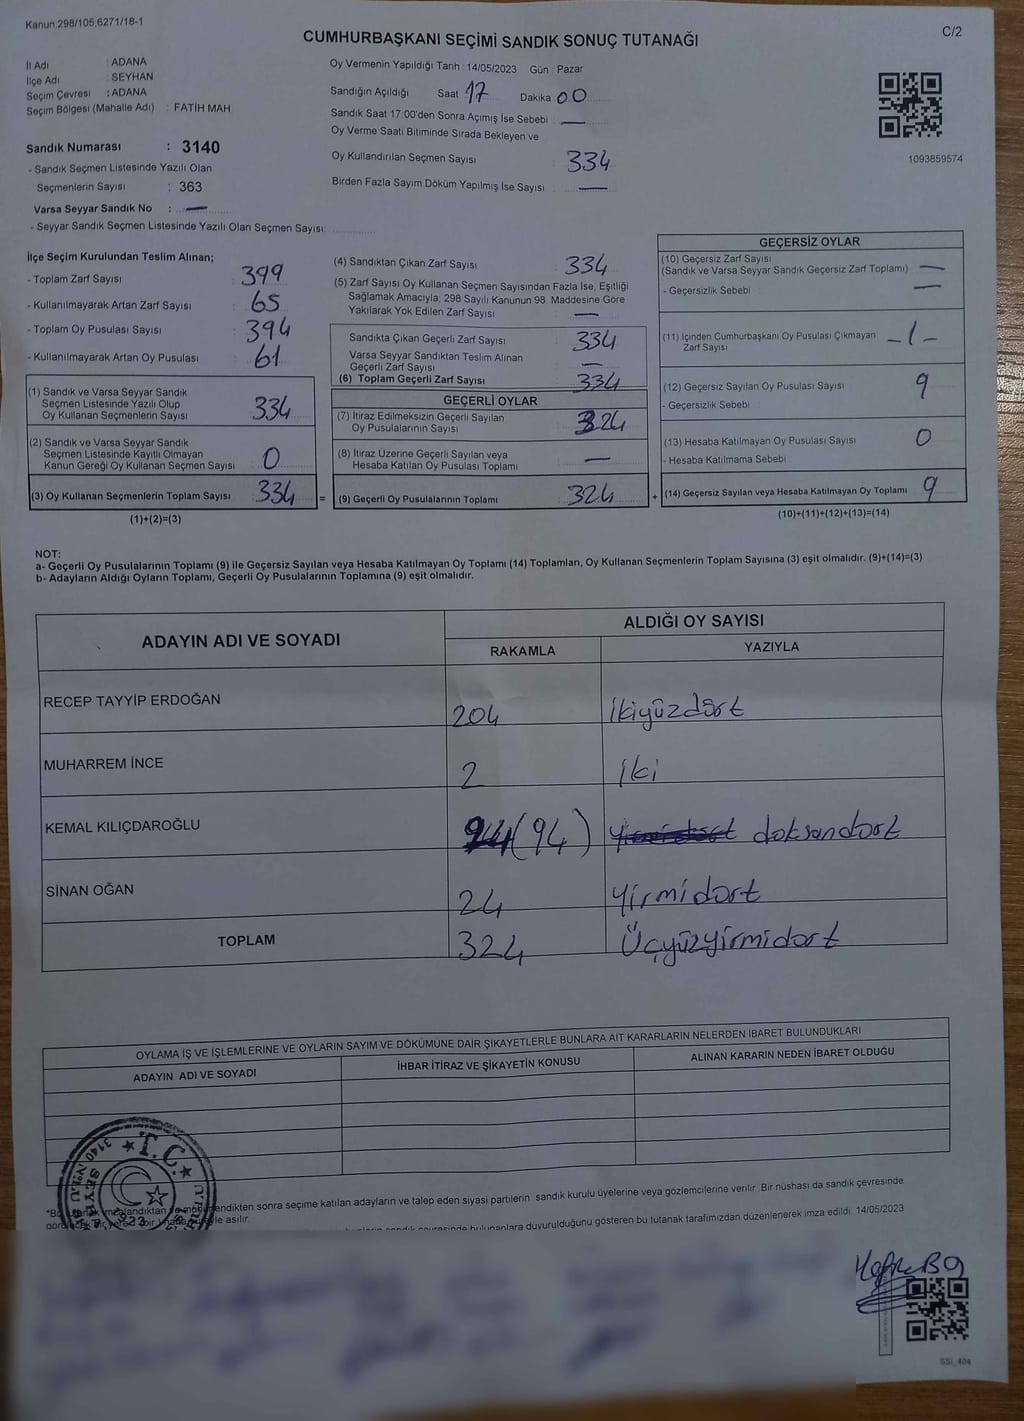 Kanun:298/105,6271/18-1
C/2
CUMHURBAŞKANI SEÇİMİ SANDIK SONUÇ TUTANAĞI
İl Adı : ADANA
İlçe Adı : SEYHAN
Seçim Çevresi : ADANA
Seçim Bölgesi (Mahalle Adı) : FATİH MAH
Sandık Numarası : 3140
- Sandık Seçmen Listesinde Yazılı Olan
Seçmenlerin Sayısı : 363
Varsa Seyyar Sandık No : —
- Seyyar Sandık Seçmen Listesinde Yazılı Olan Seçmen Sayısı:
Oy Vermenin Yapıldığı Tarih : 14/05/2023 Gün : Pazar
Sandığın Açıldığı Saat 17 Dakika 00
Sandık Saat 17:00'den Sonra Açımış İse Sebebi : —
Oy Verme Saati Bitiminde Sırada Bekleyen ve
Oy Kullandırılan Seçmen Sayısı : 334
Birden Fazla Sayım Döküm Yapılmış İse Sayısı : —
1093859574
İlçe Seçim Kurulundan Teslim Alınan;
- Toplam Zarf Sayısı : 399
- Kullanılmayarak Artan Zarf Sayısı : 65
- Toplam Oy Pusulası Sayısı : 394
- Kullanılmayarak Artan Oy Pusulası : 61
(1) Sandık ve Varsa Seyyar Sandık
Seçmen Listesinde Yazılı Olup
Oy Kullanan Seçmenlerin Sayısı : 334
(2) Sandık ve Varsa Seyyar Sandık
Seçmen Listesinde Kayıtlı Olmayan
Kanun Gereği Oy Kullanan Seçmen Sayısı : 0
(3) Oy Kullanan Seçmenlerin Toplam Sayısı : 334 =
(1)+(2)=(3)
(4) Sandıktan Çıkan Zarf Sayısı : 334
(5) Zarf Sayısı Oy Kullanan Seçmen Sayısından Fazla İse, Eşitliği
Sağlamak Amacıyla, 298 Sayılı Kanunun 98. Maddesine Göre
Yakılarak Yok Edilen Zarf Sayısı : —
Sandıkta Çıkan Geçerli Zarf Sayısı : 334
Varsa Seyyar Sandıktan Teslim Alınan
Geçerli Zarf Sayısı : —
(6) Toplam Geçerli Zarf Sayısı : 334
GEÇERLİ OYLAR
(7) İtiraz Edilmeksizin Geçerli Sayılan
Oy Pusulalarının Sayısı : 324
(8) İtiraz Üzerine Geçerli Sayılan veya
Hesaba Katılan Oy Pusulası Toplamı : —
(9) Geçerli Oy Pusulalarının Toplamı : 324 +
GEÇERSİZ OYLAR
(10) Geçersiz Zarf Sayısı
(Sandık ve Varsa Seyyar Sandık Geçersiz Zarf Toplamı) : —
- Geçersizlik Sebebi : —
(11) İçinden Cumhurbaşkanı Oy Pusulası Çıkmayan
Zarf Sayısı : -1-
(12) Geçersiz Sayılan Oy Pusulası Sayısı : 9
- Geçersizlik Sebebi
(13) Hesaba Katılmayan Oy Pusulası Sayısı : 0
- Hesaba Katılmama Sebebi
(14) Geçersiz Sayılan veya Hesaba Katılmayan Oy Toplamı : 9
(10)+(11)+(12)+(13)=(14)
NOT:
a- Geçerli Oy Pusulalarının Toplamı (9) ile Geçersiz Sayılan veya Hesaba Katılmayan Oy Toplamı (14) Toplamları, Oy Kullanan Seçmenlerin Toplam Sayısına (3) eşit olmalıdır. (9)+(14)=(3)
b- Adayların Aldığı Oyların Toplamı, Geçerli Oy Pusulalarının Toplamına (9) eşit olmalıdır.
ADAYIN ADI VE SOYADI
ALDIĞI OY SAYISI
RAKAMLA YAZIYLA
RECEP TAYYİP ERDOĞAN 204 ikiyüzdört
MUHARREM İNCE 2 iki
KEMAL KILIÇDAROĞLU 94 (94) doksandört
SİNAN OĞAN 24 yirmidört
TOPLAM 324 Üçyüzyirmidört
OYLAMA İŞ VE İŞLEMLERİNE VE OYLARIN SAYIM VE DÖKÜMÜNE DAİR ŞİKAYETLERLE BUNLARA AİT KARARLARIN NELERDEN İBARET BULUNDUKLARI
ADAYIN ADI VE SOYADI İHBAR İTİRAZ VE ŞİKAYETİN KONUSU ALINAN KARARIN NEDEN İBARET OLDUĞU
T.C.
3140
sonra seçime katılan adayların ve talep eden siyasi partilerin sandık kurulu üyelerine veya gözlemcilerine verilir. Bir nüshası da sandık çevresinde
asılır.
sandık çevresinde bulunanlara duyurulduğunu gösteren bu tutanak tarafımızdan düzenlenerek imza edildi. 14/05/2023
SSI_404